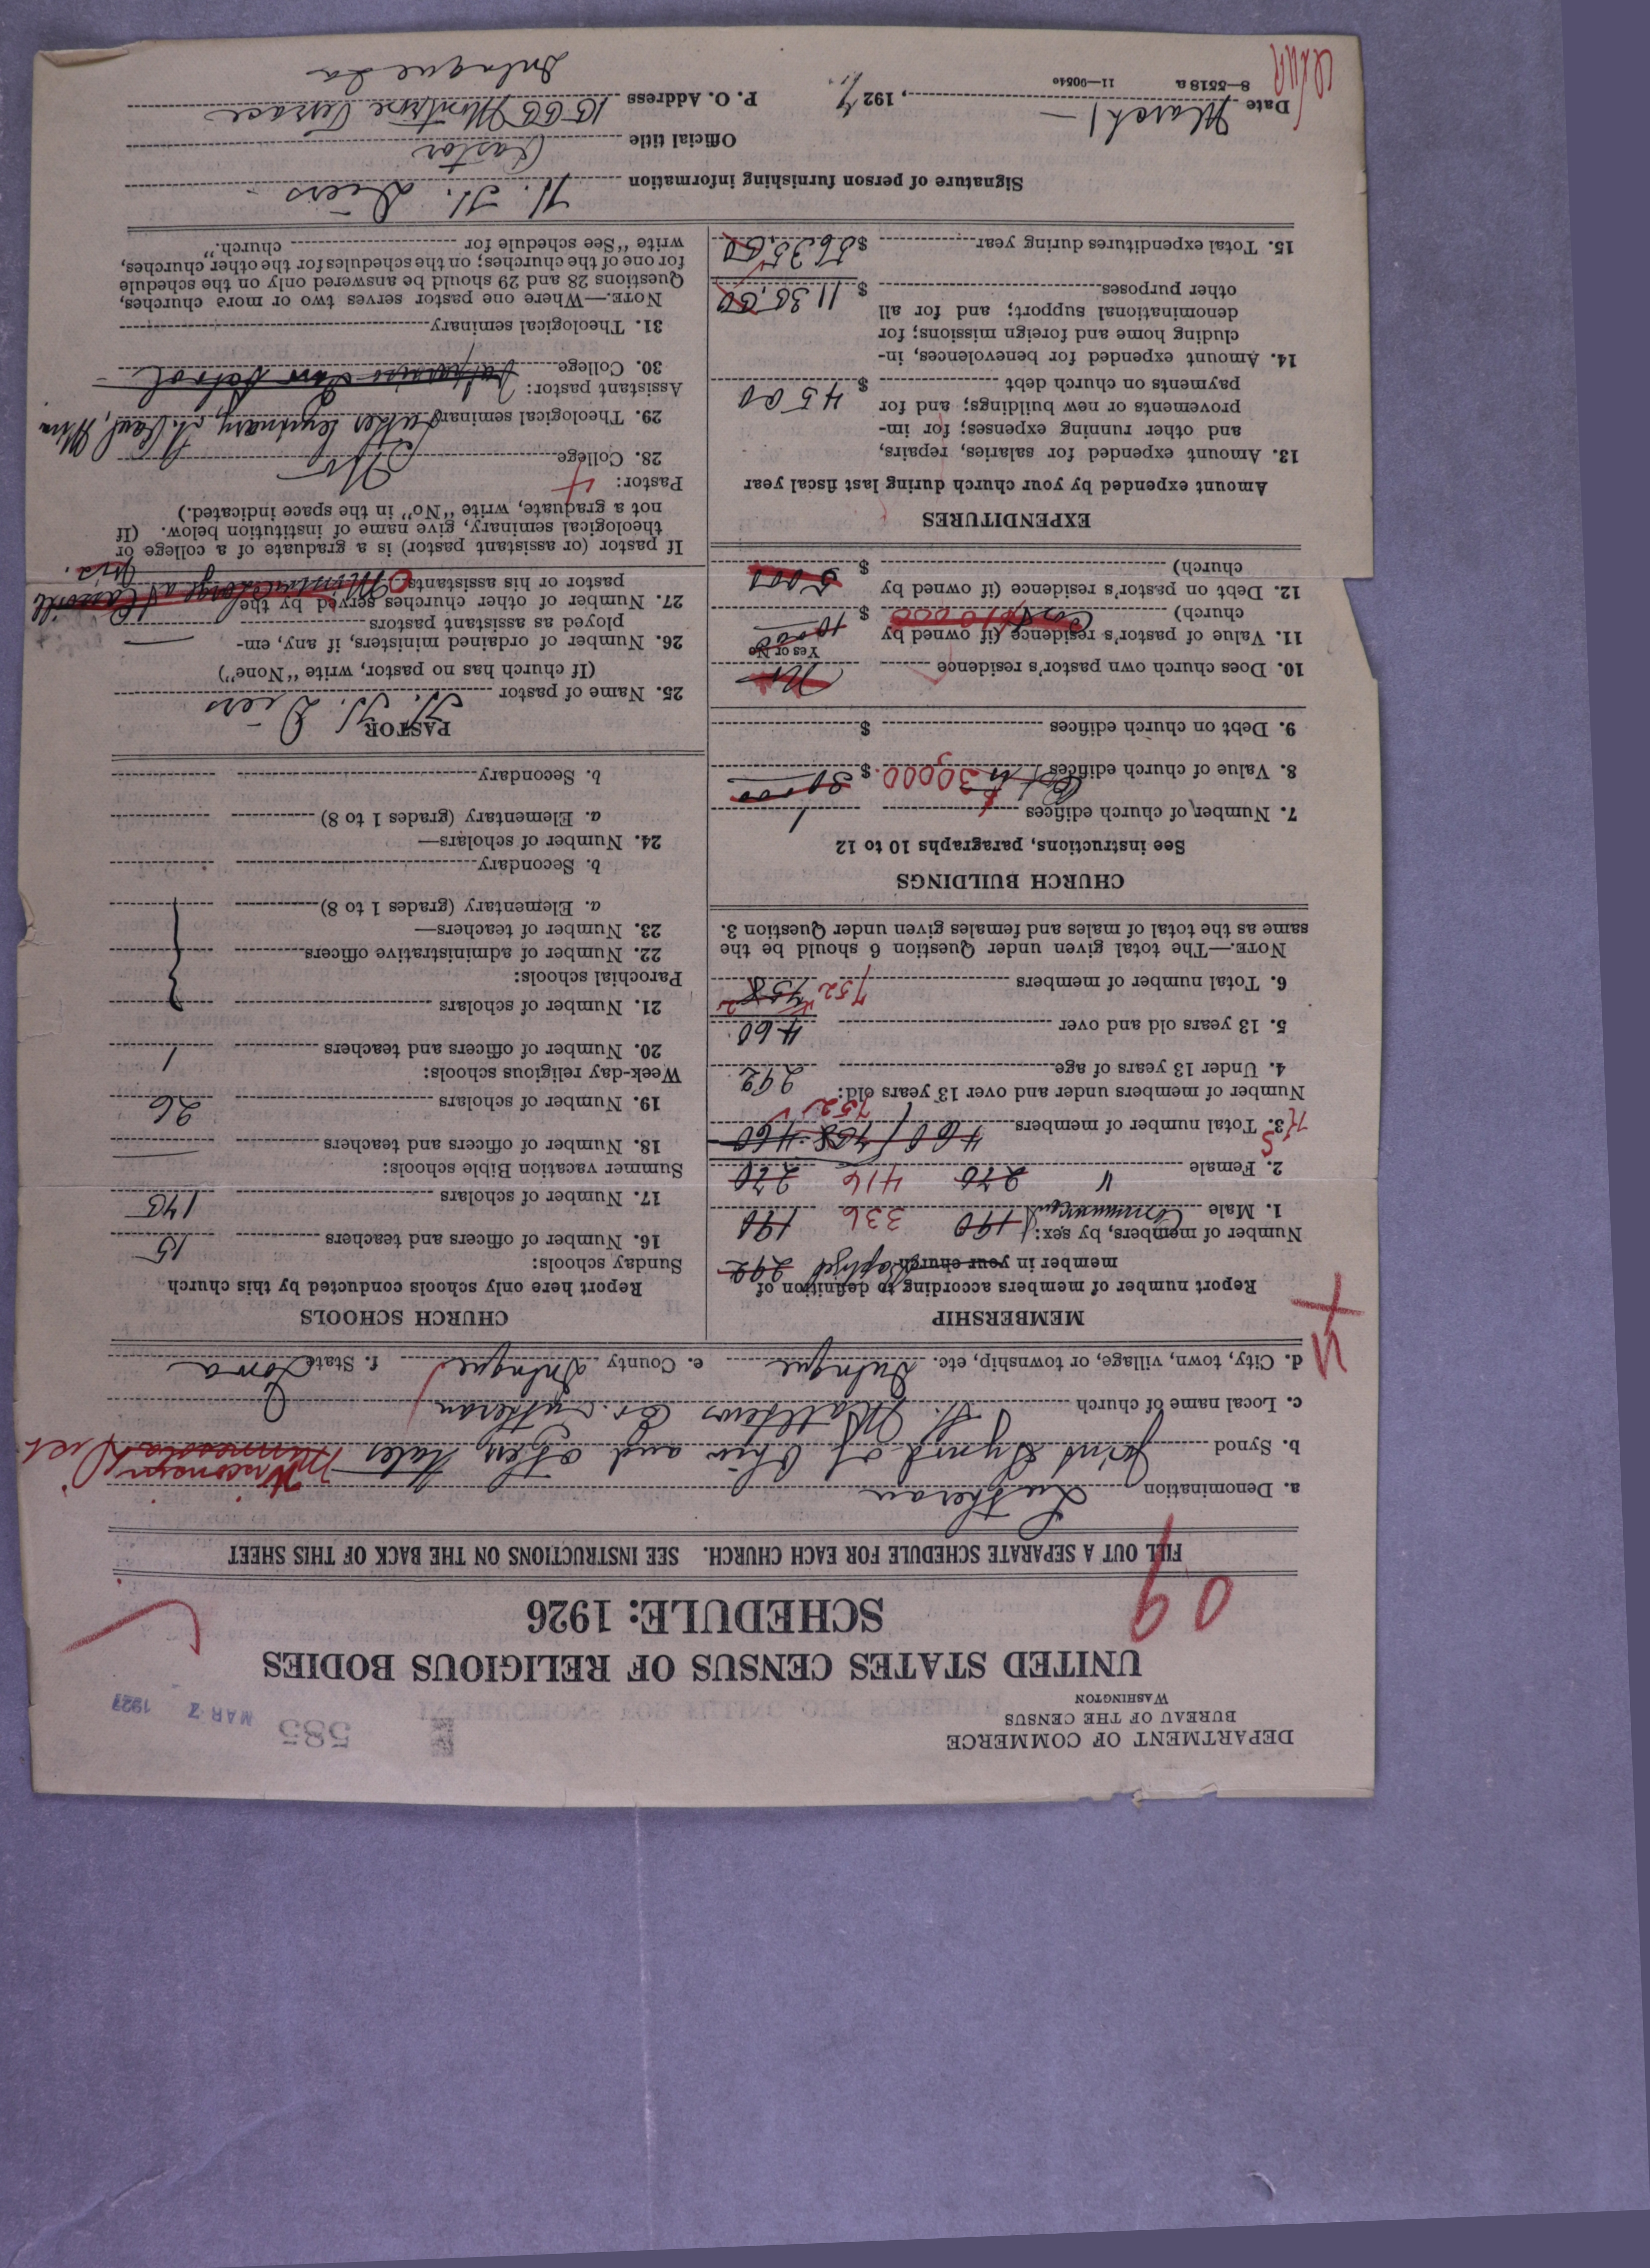 DEPARTMENT OF COMMERCE
BUREAU OF THE CENSUS
WASHINGTON
585
MAR 7 1927
UNITED STATES CENSUS OF RELIGIOUS BODIES
SCHEDULE: 1926
09
FILL OUT A SEPARATE SCHEDULE FOR EACH CHURCH. SEE INSTRUCTIONS ON THE BACK OF THIS SHEET
a. Denomination Lutheran
b. Synod Joint Synod of Ohio and other States
c. Local name of church St. Matthews Ev. Lutheran
d. City, town, village, or township, etc. Dubuque e. County Dubuque f. State Iowa
MEMBERSHIP
Report number of members according to definition of
member in your church Baptized 292
Number of members, by sex:
1. Male Communicant 190 336 190
2. Female " 270 416 270
3. Total number of members 460 758 460 752
Number of members under and over 13 years old:
4. Under 13 years of age 292
5. 13 years old and over 460
6. Total number of members 752 758
NOTE.—The total given under Question 6 should be the
same as the total of males and females given under Question 3.
CHURCH BUILDINGS
See instructions, paragraphs 10 to 12
7. Number of church edifices 1
8. Value of church edifices 30,000 $ 30000
9. Debt on church edifices $
10. Does church own pastor's residence No
Yes or No
11. Value of pastor's residence (if owned by
church) Cost $10000 $ 10000
12. Debt on pastor's residence (if owned by
church) $ 5000
EXPENDITURES
Amount expended by your church during last fiscal year
13. Amount expended for salaries, repairs,
and other running expenses; for im-
provements or new buildings; and for
payments on church debt $ 4500
14. Amount expended for benevolences, in-
cluding home and foreign missions; for
denominational support; and for all
other purposes $ 1135.00
15. Total expenditures during year $ 5635.00
CHURCH SCHOOLS
Report here only schools conducted by this church
Sunday schools:
16. Number of officers and teachers 15
17. Number of scholars 145
Summer vacation Bible schools:
18. Number of officers and teachers
19. Number of scholars 26
Week-day religious schools:
20. Number of officers and teachers 1
21. Number of scholars
Parochial schools:
22. Number of administrative officers
23. Number of teachers—
a. Elementary (grades 1 to 8)
b. Secondary
24. Number of scholars—
a. Elementary (grades 1 to 8)
b. Secondary
PASTOR
25. Name of pastor H. H. Diers
(If church has no pastor, write "None")
26. Number of ordained ministers, if any, em-
ployed as assistant pastors —
27. Number of other churches served by the
pastor or his assistants 0
If pastor (or assistant pastor) is a graduate of a college or
theological seminary, give name of institution below. (If
not a graduate, write "No" in the space indicated.)
Pastor:
28. College No
29. Theological seminary Luther Seminary, St. Paul, Minn
Assistant pastor:
30. College
31. Theological seminary
NOTE.—Where one pastor serves two or more churches,
Questions 28 and 29 should be answered only on the schedule
for one of the churches; on the schedules for the other churches,
write "See schedule for church."
Signature of person furnishing information H. H. Diers
Official title Pastor
P. O. Address 1555 Montrose Terrace
Dubuque Ia
Date March 1 —, 1927
8—5518 a 11—9054e